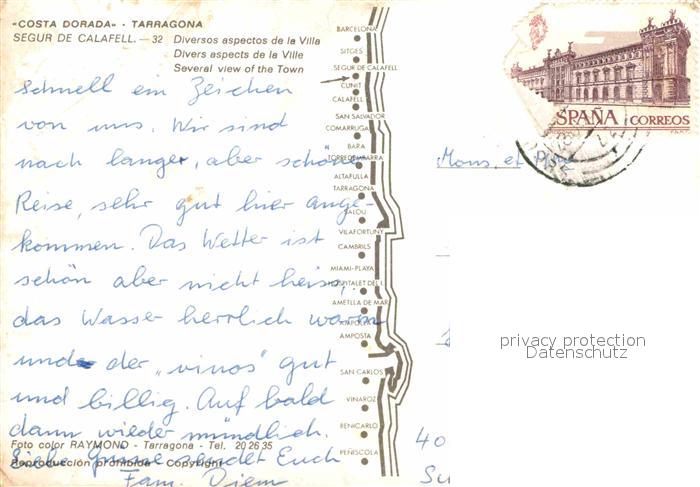 «COSTA DORADA» - TARRAGONA
SEGUR DE CALAFELL. — 32 Diversos aspectos de la Villa
Divers aspects de la Ville
Several view of the Town
schnell ein Zeichen
von uns. Wir sind
nach langer, aber schöner
Reise, sehr gut hier ange-
kommen. Das Wetter ist
schön aber nicht heiss,
das Wasser herrlich warm
und der "vinos" gut
und billig. Auf bald
dann wieder mündlich.
Foto color RAYMOND - Tarragona - Tel. 20 26 35
Liebe Grüsse sendet Euch
Reproducción prohibida - Copyright
Fam. Diem
BARCELONA
SITGES
SEGUR DE CALAFELL
CUNIT
CALAFELL
SAN SALVADOR
COMARRUGA
BARA
TORREDEMBARRA
ALTAFULLA
TARRAGONA
SALOU
VILAFORTUNY
CAMBRILS
MIAMI-PLAYA
HOSPITALET DEL I.
AMETLLA DE MAR
AMPOLLA
AMPOSTA
SAN CARLOS
VINAROZ
BENICARLO
PEÑISCOLA
ESPAÑA CORREOS
Mons et
40
privacy protection
Datenschutz